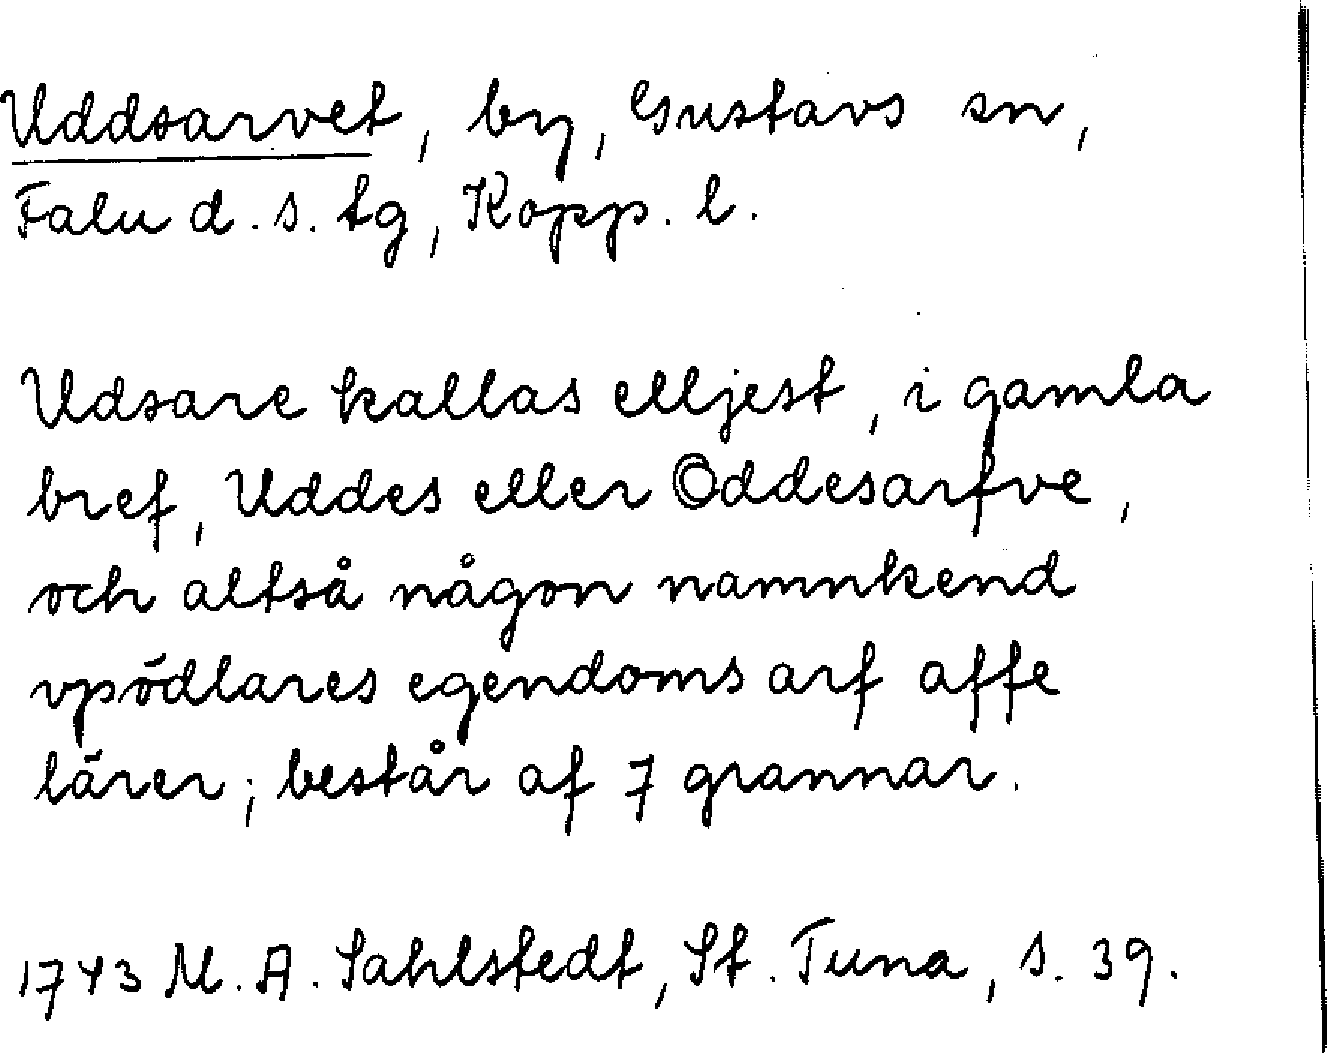 Uddsarvet, by, Gustavs sn,
Falu d. s. tg, Kopp. l.
Udsare kallas elljest, i gamla
bref, Uddes eller Oddesarfve,
och altså någon namnkend
vpödlares egendoms arf affe
lärer; består af 7 grannar.
1743 M. A. Sahlstedt, St. Tuna, s. 39.